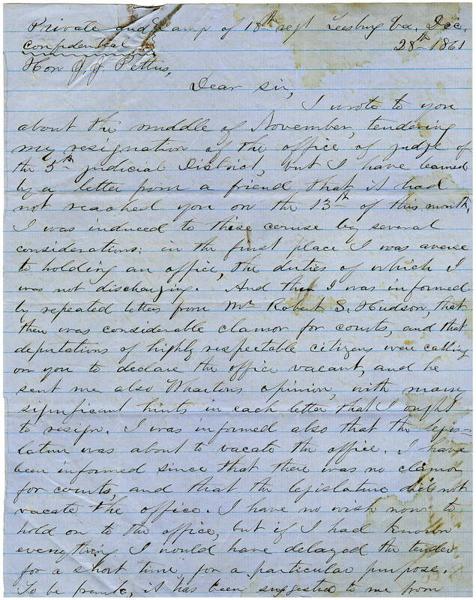 Private and Camp of 18th regt Leesburg Va, Dec,
Confidential 28th 1861
Hon J. J. Pettus,
Dear sir,
I wrote to you
about the middle of November, tendering
my resignation of the office of judge of
the 5th judicial District, but I have learned
by a letter from a friend that it had
not reached you on the 13th of this month
I was induced to these course by several
considerations: in the first place I was averse
to holding an office, the duties of which I
was not discharging. And then I was informed
by repeated letters from Mr Robert S. Hudson, that
there was considerable clamor for courts, and that
deputations of highly respectable citizens were calling
on you to declare the office vacant, and he
sent me also opinion, with many
significant hints in each letter that I ought
to resign. I was informed also that the legis-
lature was about to vacate the office. I have
been informed since that there was no clamor
for courts, and that the legislature did not
vacate the office. I have no wish now to
hold on to the office, but if I had known
everything I would have delayed the tender
for a short time for a particular purpose.
To be frank, it has been suggested to me from